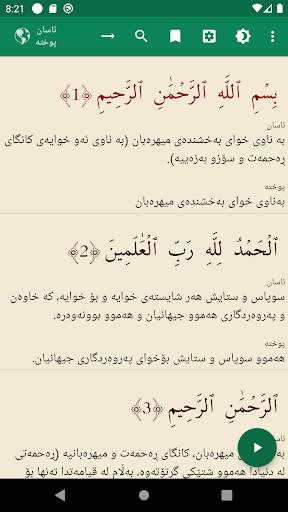 8:21
ئاسان
پوختە
بِسْمِ ٱللَّهِ ٱلرَّحْمَٰنِ ٱلرَّحِيمِ ﴿1﴾
ئاسان
بە ناوی خوای بەخشندەی میهرەبان (بە ناوی ئەو خوایەی کانگای
ڕەحمەت و سۆزو بەزەییە).
پوختە
بەناوی خوای بەخشندەی میهرەبان
ٱلْحَمْدُ لِلَّهِ رَبِّ ٱلْعَٰلَمِينَ ﴿2﴾
ئاسان
سوپاس و ستایش هەر شایستەی خوایە و بۆ خوایە، کە خاوەن و
پەروەردگاری هەموو جیهانیان و هەموو بوونەوەرە.
پوختە
هەموو سوپاس و ستایش بۆخوای پەروەردگاری جیهانیان.
ٱلرَّحْمَٰنِ ٱلرَّحِيمِ ﴿3﴾
ئاسان
بەخشندەیە بەهەمووان، کانگای ڕەحمەت و میهرەبانیە (ڕەحمەتی
لە دنیادا هەموو شتێکی گرتۆتەوە، بەڵام لە قیامەتدا تەنها بۆ